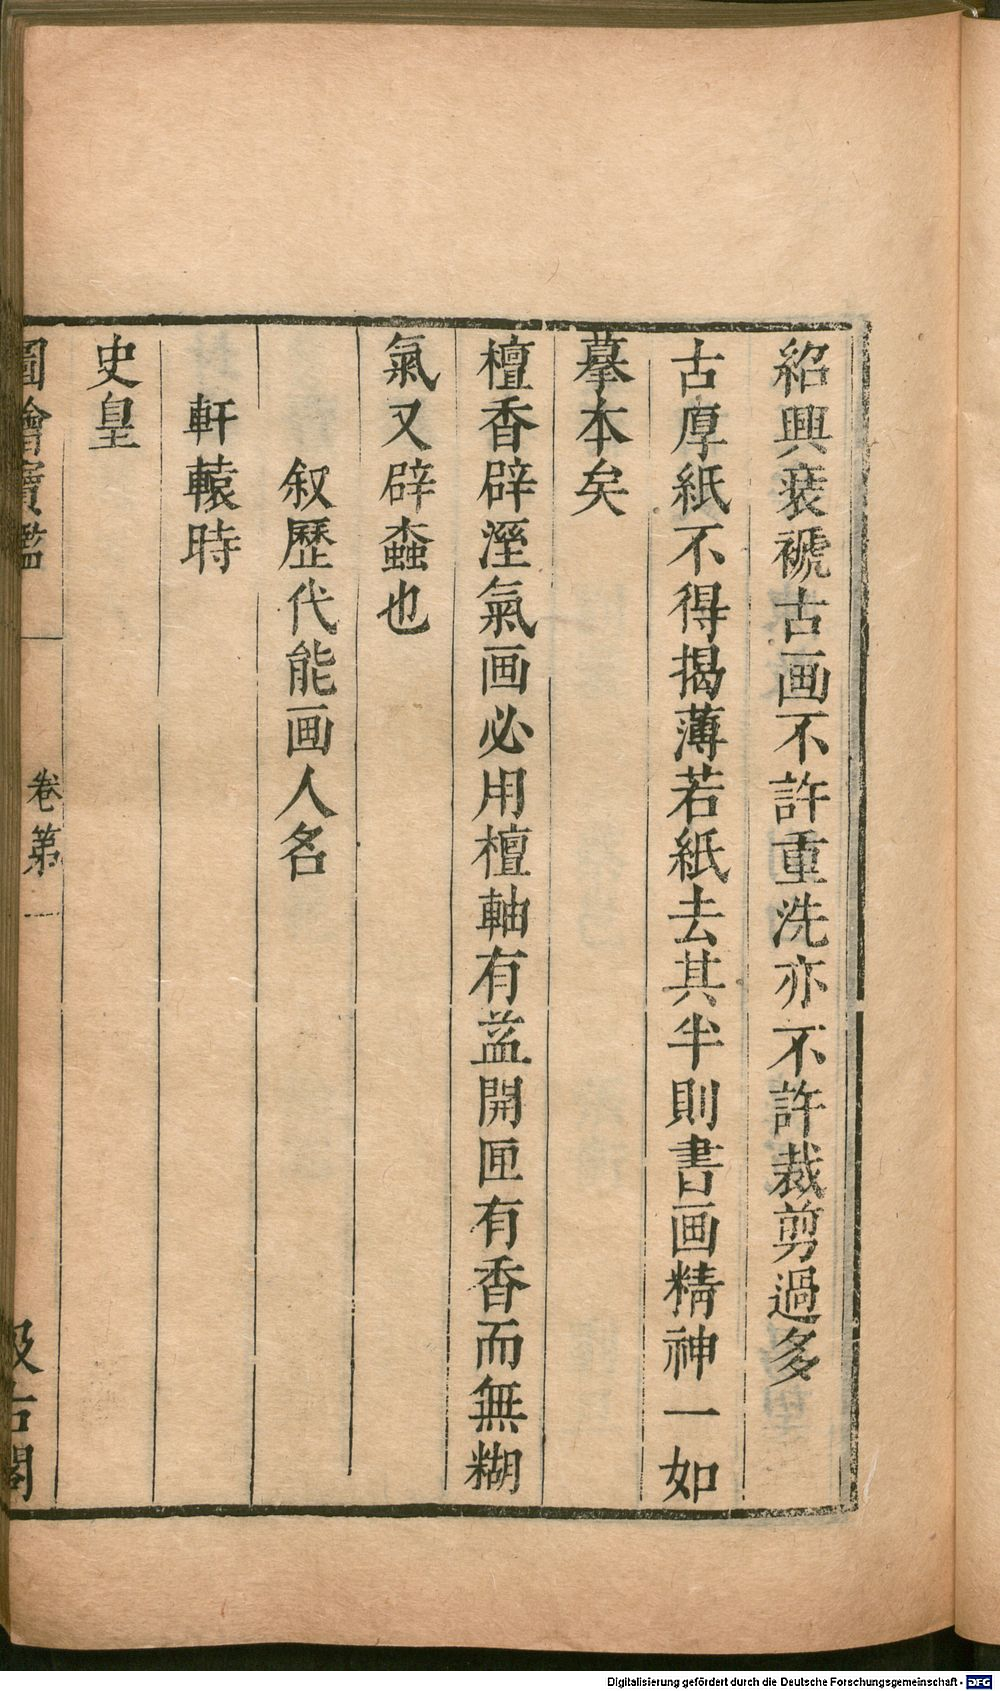 紹興裝褫古画不許重洗亦不許裁剪過多
古厚紙不得揭薄若紙去其半則書画精神一如
摹本矣
檀香辟溼氣画必用檀軸有益開匣有香而無糊
氣又辟蠧也
叙歷代能画人名
軒轅時
史皇
圖繪寶鑑 卷第一 汲古閣
Digitalisierung gefördert durch die Deutsche Forschungsgemeinschaft - DFG